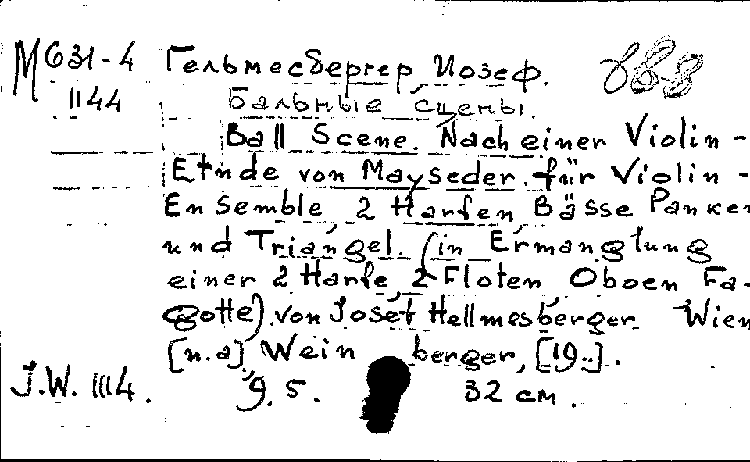 М631-4 Гельмесбергер Иозеф.
1144 Бальные сцены.
Ball Scene. Nach einer Violin-
Etnde von Mayseder. für Violin-
Ensemble, 2 Harfen, Bässe Panken
und Triangel. (in Ermanglung
einer 2 Harfe, 2 Floten Oboen Fa-
gotte). von Josef Hellmesberger. Wien
[n.a], Wein berger, [19..].
J.W. 1114. g. 5. 32 см.